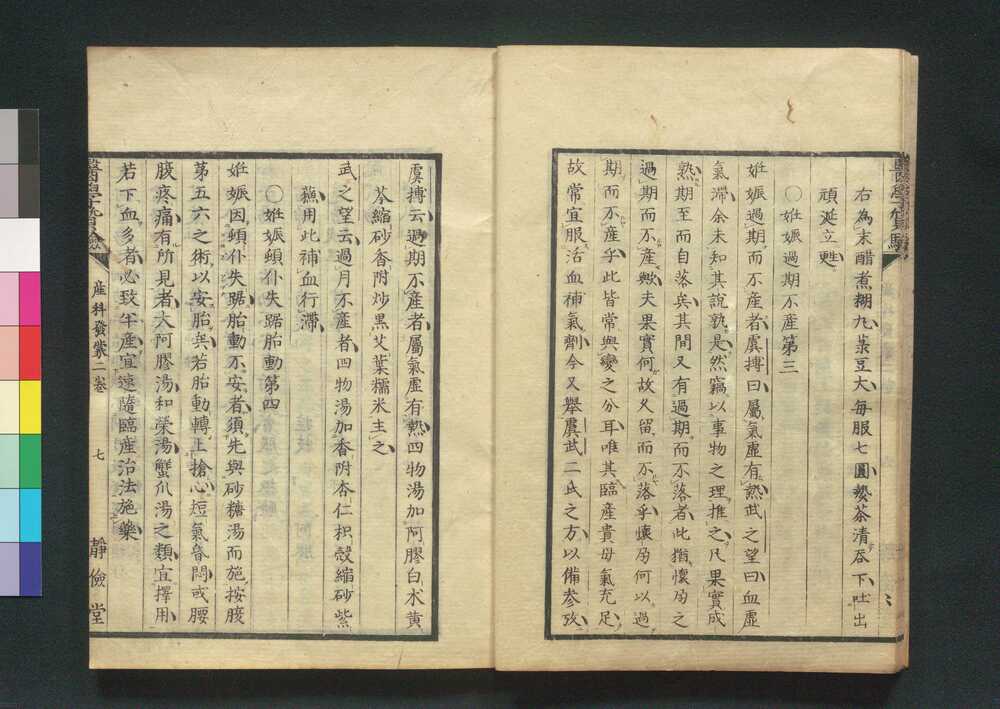 右為末醋煮糊丸菉豆大毎服七圓熱茶清吞下吐出
頑涎立甦
〇姙娠過期不産第三
姙娠過期而不産者虞摶曰屬氣虛有熱武之望曰血虛
氣滯余未知其說孰是然竊以事物之理推之凡果實成
熟期至而自落矣其間又有過期而不落者此猶懷孕之
過期而不産歟夫果實何故久留而不落乎懷孕何以過
期而不産乎此皆常與變之分耳唯其臨産貴母氣充足
故常宜服活血補氣劑今又舉虞武二氏之方以備参攷
虞摶云過期不産者屬氣虛有熱四物湯加阿膠白朮黄
芩縮砂香附炒黒艾葉糯米主之
武之望云過月不産者四物湯加香附杏仁枳殻縮砂紫
蘓用此補血行滯
〇姙娠傾仆失踞胎動第四
姙娠因傾仆失踞胎動不安者須先與砂糖湯而施按腹
第五六之術以安胎矣若胎動轉上搶心短氣昏悶或腰
腹疼痛有所見者大阿膠湯和榮湯蟹爪湯之類宜擇用
若下血多者必致半産宜速隨臨産治法施藥
産科發蒙二卷
七
靜儉堂